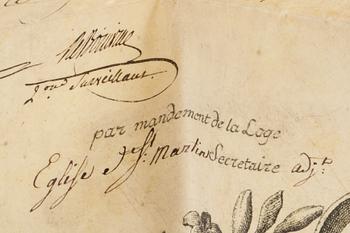 2.ond Surveillant
par mandement de la Loge
Eglise St. Martin Secretaire adj.t